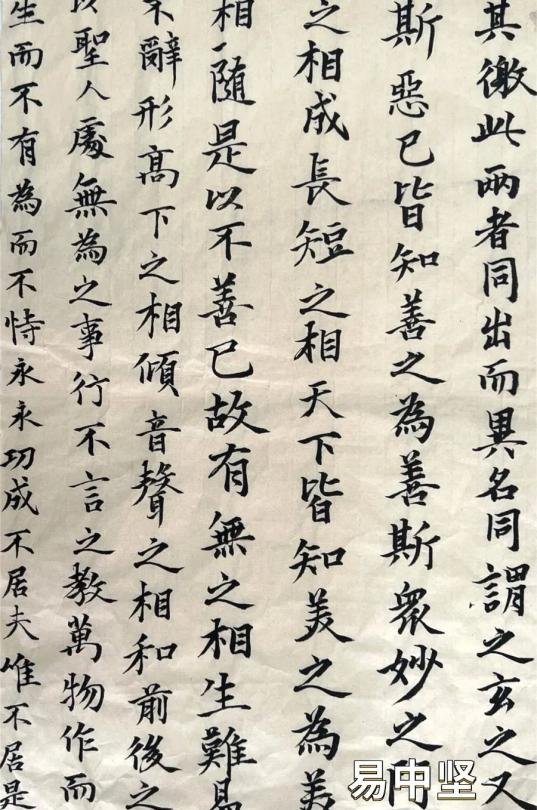 其徼此兩者同出而異名同謂之玄之又
斯惡已皆知善之為善斯眾妙之門
之相成長短之相天下皆知美之為美
相隨是以不善已故有無之相生難易
不辭形高下之相傾音聲之相和前後之
以聖人處無為之事行不言之教萬物作而
生而不有為而不恃永永功成不居夫唯不居是
易中坚